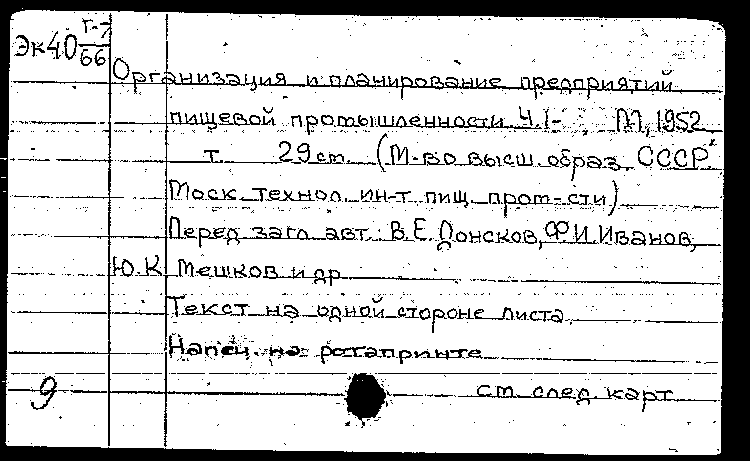 Эк40 Г-7/66
Организация и планирование предприятий
пищевой промышленности Ч.I- ; М, 1952
т. 29 см. (М-во высш. образ. СССР
Моск. технол. ин-т пищ. пром-сти)
Перед загл. авт.: В.Е. Донсков, Ф.И. Иванов,
Ю.К. Мешков и др
Текст на одной стороне листа.
Напеч. на ротапринте
9 см. след. карт